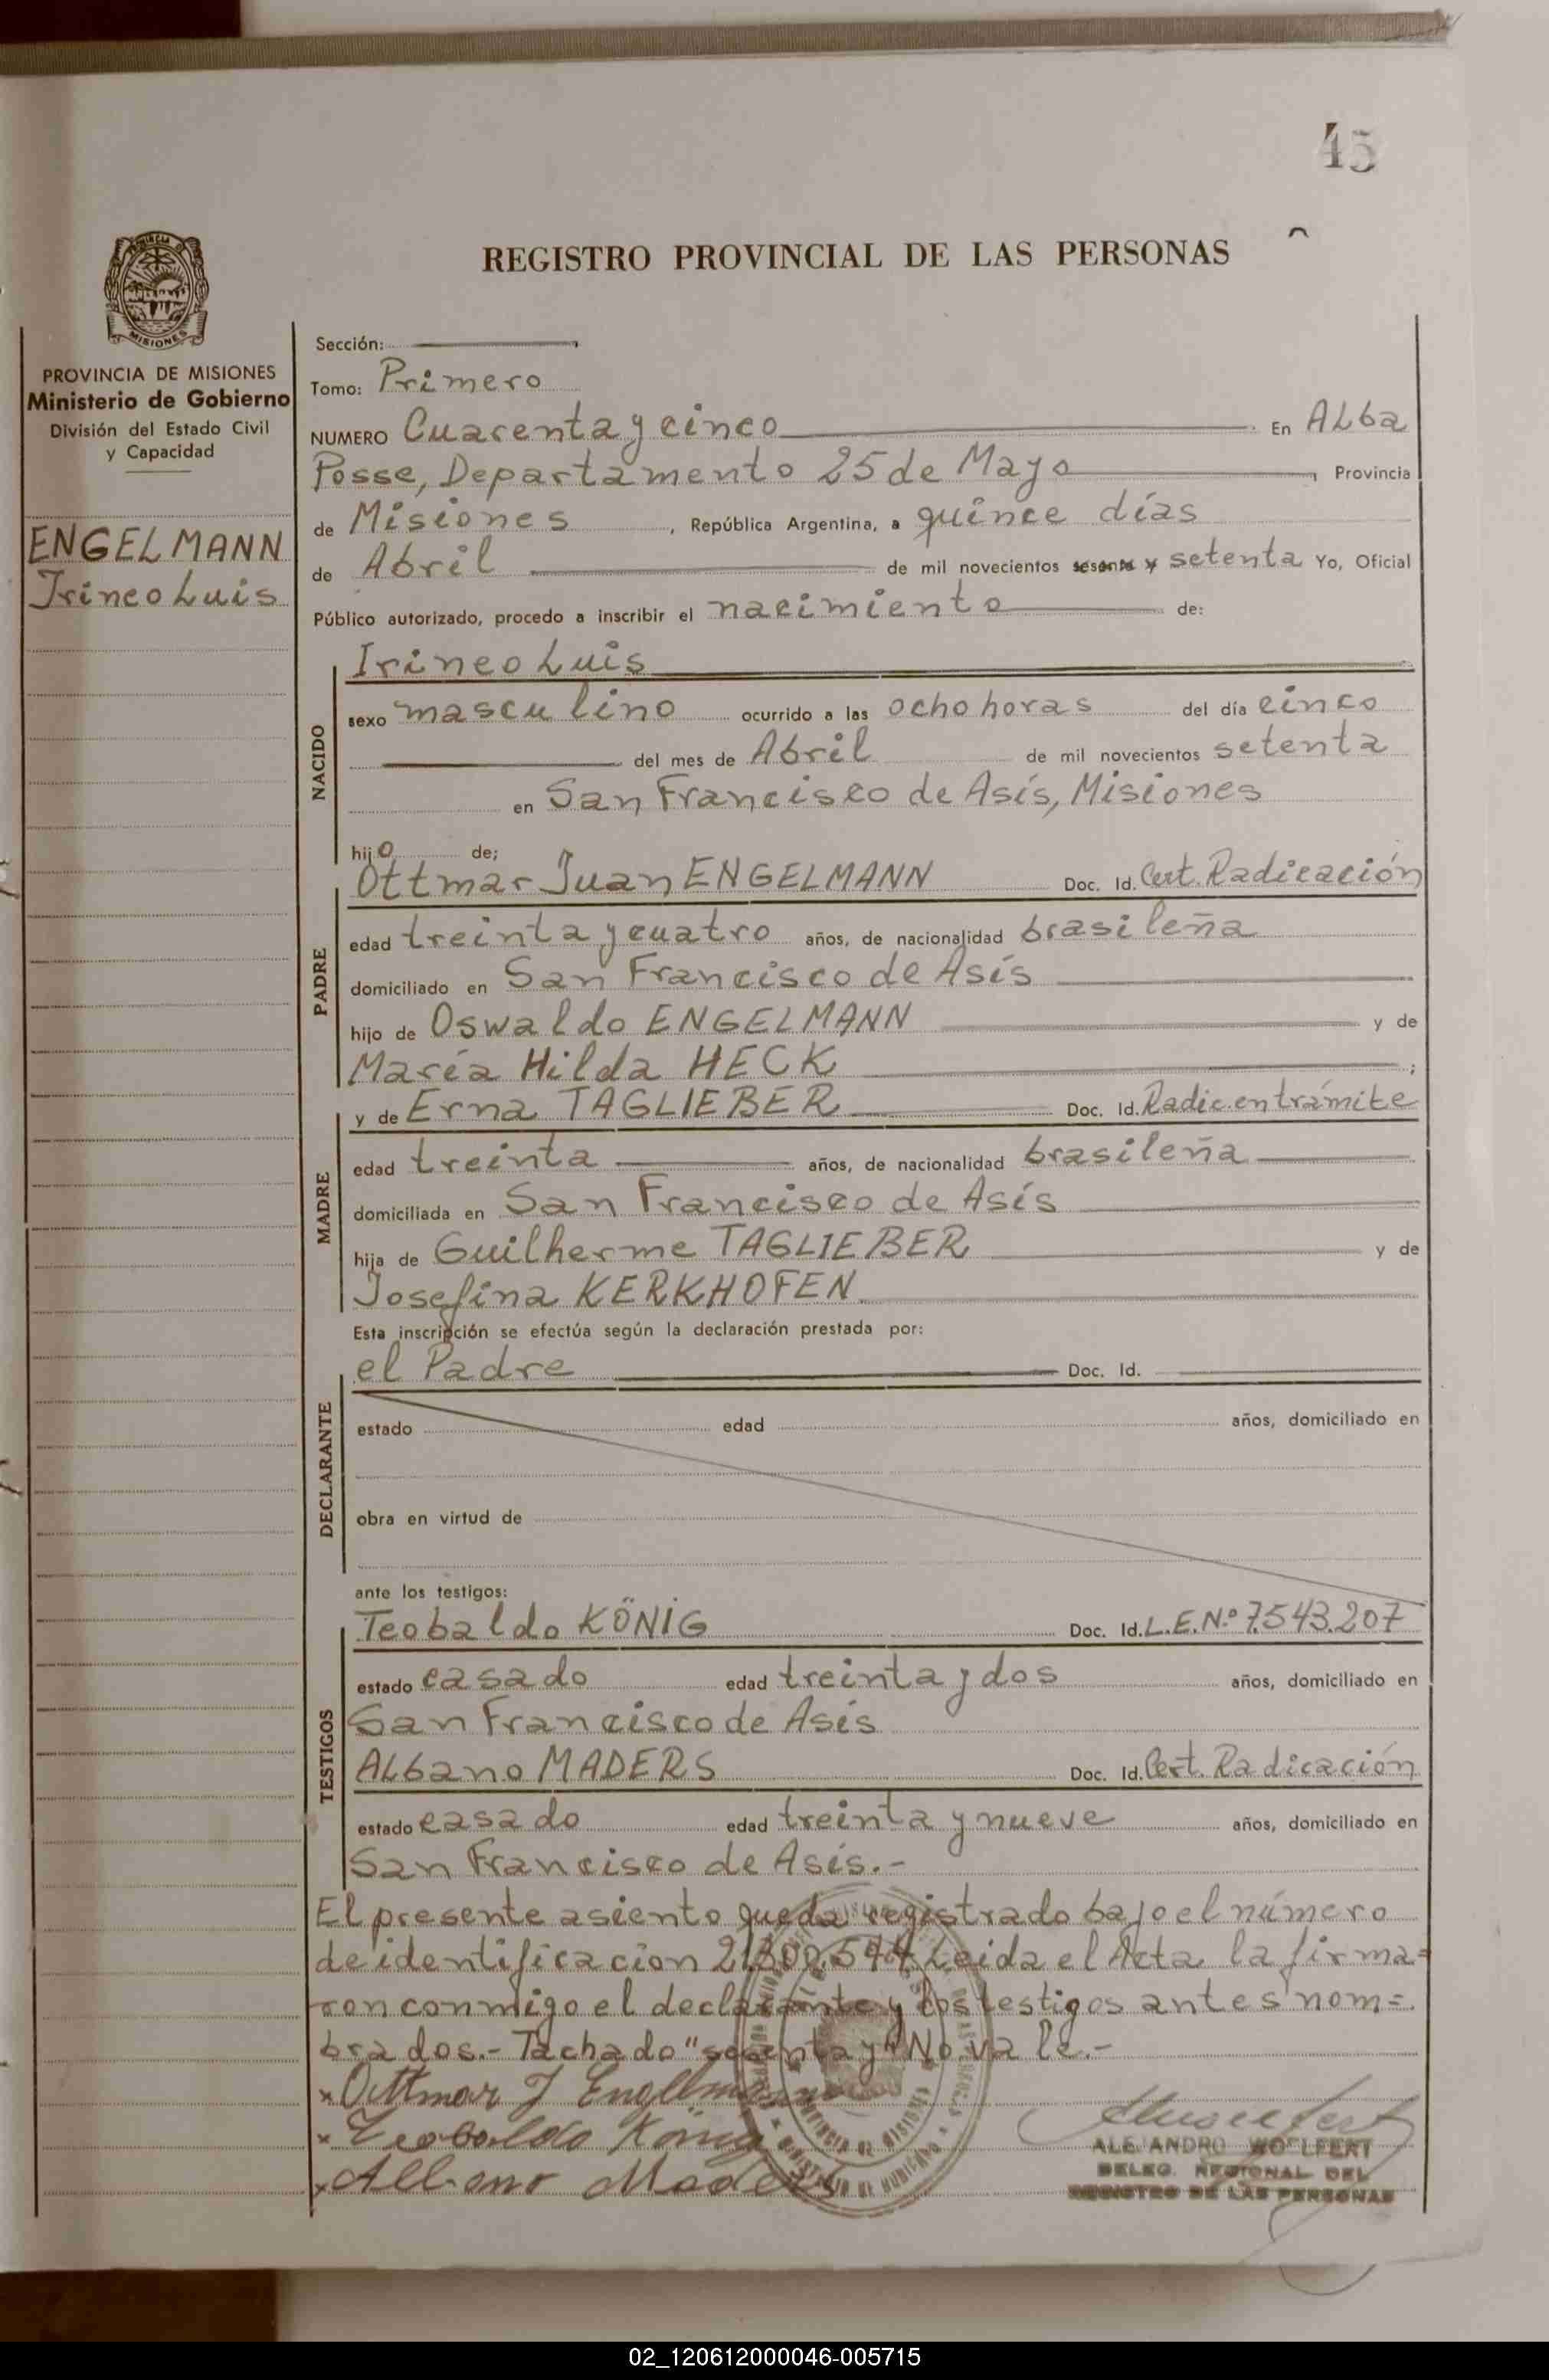 45
REGISTRO PROVINCIAL DE LAS PERSONAS
PROVINCIA DE
MISIONES
PROVINCIA DE MISIONES
Ministerio de Gobierno
División del Estado Civil
y Capacidad
ENGELMANN
Irineo Luis
Sección:
Tomo: Primero
NUMERO Cuarenta y cinco En Alba
Posse, Departamento 25 de Mayo, Provincia
de Misiones, República Argentina, a quince días
de Abril de mil novecientos sesenta y setenta Yo, Oficial
Público autorizado, procedo a inscribir el nacimiento de:
NACIDO
Irineo Luis
sexo masculino ocurrido a las ocho horas del día cinco
del mes de Abril de mil novecientos setenta
en San Francisco de Asís, Misiones
hijo de;
PADRE
Ottmar Juan ENGELMANN Doc. Id. Cert. Radicación
edad treinta y cuatro años, de nacionalidad brasileña
domiciliado en San Francisco de Asís
hijo de Oswaldo ENGELMANN y de
María Hilda HECK ;
MADRE
y de Erna TAGLIEBER Doc. Id. Radic. en trámite
edad treinta años, de nacionalidad brasileña
domiciliada en San Francisco de Asís
hija de Guilherme TAGLIEBER y de
Josefina KERKHOFEN
Esta inscripción se efectúa según la declaración prestada por:
DECLARANTE
el Padre Doc. Id.
estado edad años, domiciliado en
obra en virtud de
ante los testigos:
TESTIGOS
Teobaldo KÖNIG Doc. Id. L.E.Nº 7.543.207
estado casado edad treinta y dos años, domiciliado en
San Francisco de Asís
Albano MADERS Doc. Id. Cert. Radicación
estado casado edad treinta y nueve años, domiciliado en
San Francisco de Asís.-
El presente asiento queda registrado bajo el número
de identificación Leida el Acta, la firma=
ron conmigo el declarante y los testigos antes nom=
brados.- Tachado "sesenta y" No vale.-
x Ottmar J Engellmann
x Teobaldo König
x Albano Maders
ALEJANDRO WOELFERT
DELEG. REGIONAL DEL
REGISTRO DE LAS PERSONAS
02_120612000046-005715